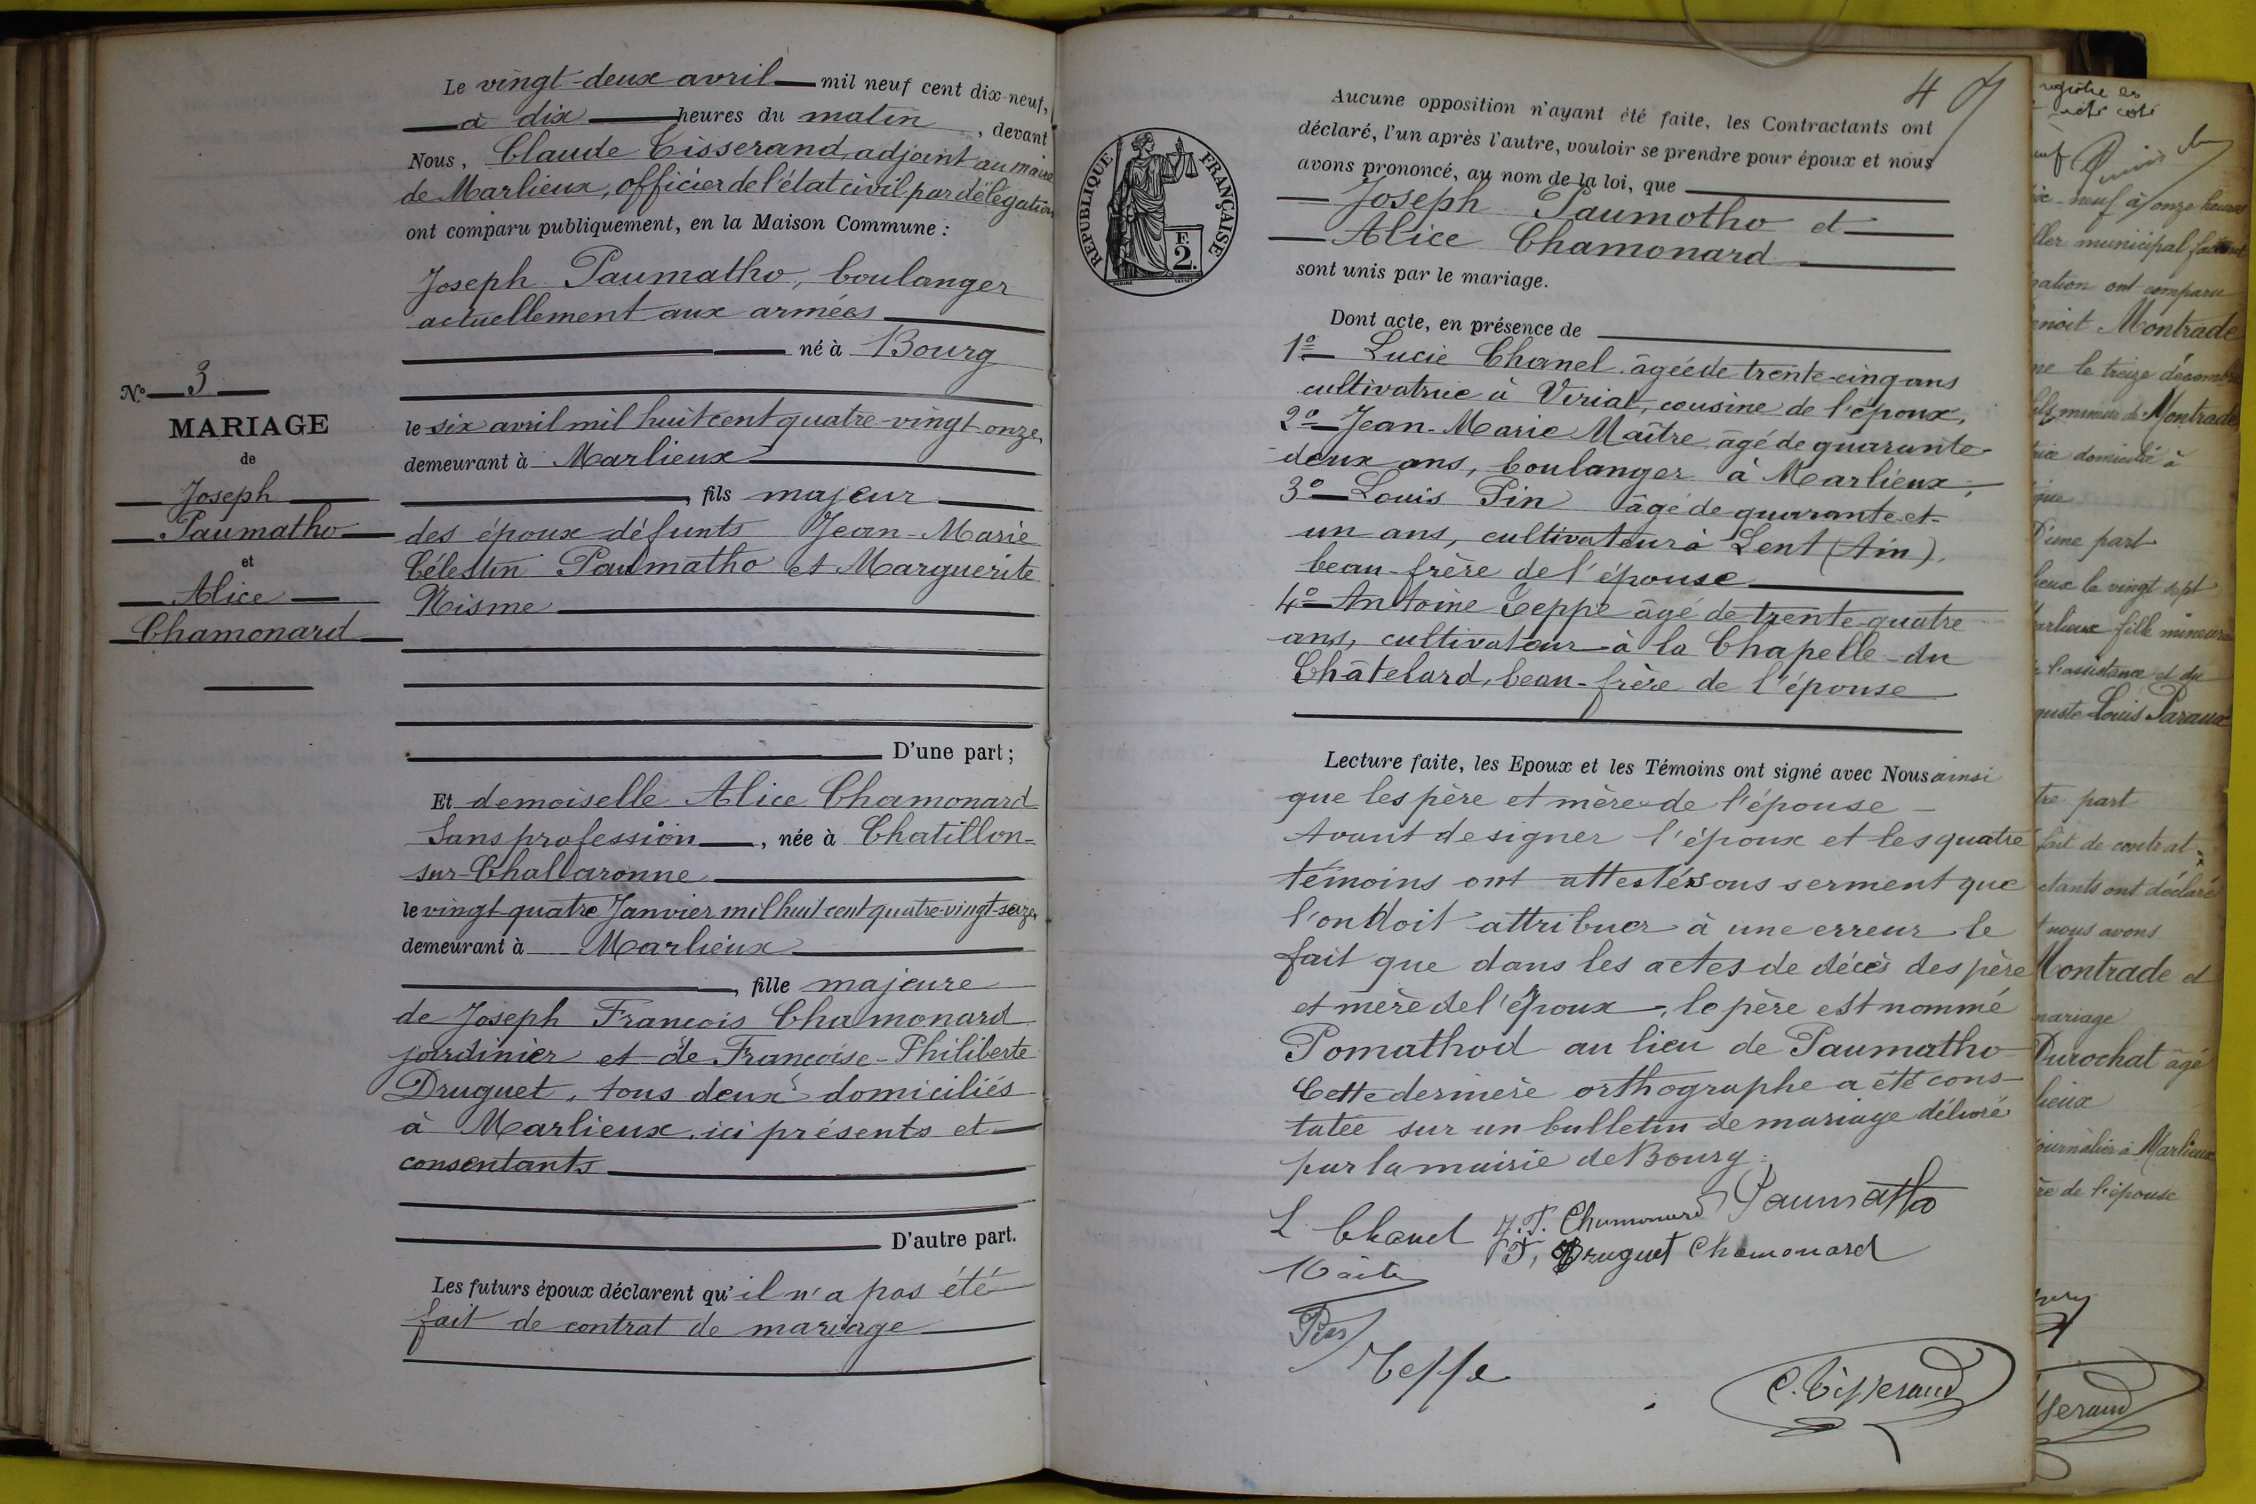 Le vingt-deux avril mil neuf cent dix-neuf,
à dix heures du matin, devant
Nous, Claude Tisserand, adjoint au maire
de Marlieux, officier de l'état civil par délégation
ont comparu publiquement, en la Maison Commune :
Joseph Paumatho, boulanger
actuellement aux armées
né à Bourg
le six avril mil huit cent quatre-vingt-onze,
demeurant à Marlieux
, fils majeur
des époux défunts Jean-Marie
Célestin Paumatho et Marguerite
Nisme
D'une part ;
Et demoiselle Alice Chamonard
Sans profession, née à Chatillon-
sur-Challaronne
le vingt-quatre Janvier mil huit cent quatre-vingt-seize,
demeurant à Marlieux
, fille majeure
de Joseph François Chamonard
jardinier et de Françoise-Philiberte
Druguet, tous deux domiciliés
à Marlieux, ici présents et
consentants
D'autre part.
Les futurs époux déclarent qu'il n'a pas été
fait de contrat de mariage
N° 3
MARIAGE
de
Joseph
Paumatho
et
Alice
Chamonard
4
RÉPUBLIQUE FRANÇAISE
F.
2.
Aucune opposition n'ayant été faite, les Contractants ont
déclaré, l'un après l'autre, vouloir se prendre pour époux et nous
avons prononcé, au nom de la loi, que
Joseph Paumotho et
Alice Chamonard
sont unis par le mariage.
Dont acte, en présence de
1° Lucie Chanel, âgée de trente-cinq ans
cultivatrice à Viriat, cousine de l'époux,
2° Jean-Marie Maître âgé de quarante-
deux ans, boulanger à Marlieux,
3° Louis Pin âgé de quarante-et-
un ans, cultivateur à Lent (Ain),
beau-frère de l'épouse
4° Antoine Teppe âgé de trente-quatre
ans, cultivateur à la Chapelle-du
Châtelard, beau-frère de l'épouse
Lecture faite, les Epoux et les Témoins ont signé avec Nous ainsi
que les père et mère de l'épouse
Avant de signer l'époux et les quatre
témoins ont attesté sous serment que
l'on doit attribuer à une erreur le
fait que dans les actes de décès des père
et mère de l'époux, le père est nommé
Pomathod au lieu de Paumatho
Cette dernière orthographe a été cons-
tatée sur un bulletin de mariage délivré
par la mairie de Bourg.
L. Chanel J. F. Chamonard Paumatho
F. Druguet Chamonard
Maître
Pin
Teppe
C. Tisserand
registre es
neuf à onze heures
ller municipal
ont comparu
Montrade
le treize décembre
Montrade
domicilié à
D'une part
le vingt sept
fille mineure
l'assistance et du
Louis Paraux
part
fait de contrat
ont déclaré
nous avons
Montrade et
mariage
Durochat âgé
lieux
journalier à Marlieux
de l'épouse